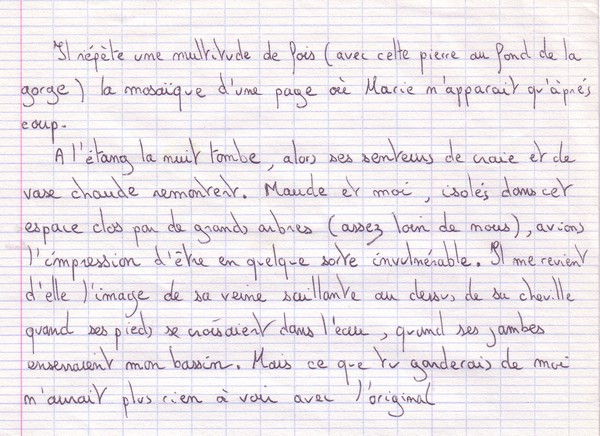 Il répète une multitude de fois (avec cette pierre au fond de la
gorge) la mosaïque d'une page où Marie n'apparaît qu'après
coup.
A l'étang la nuit tombe, alors ses senteurs de craie et de
vase chaude remontent. Maude et moi, isolés dans cet
espace clos par de grands arbres (assez loin de nous), avions
l'impression d'être en quelque sorte invulnérable. Il me revient
d'elle l'image de sa veine saillante au dessus de sa cheville
quand ses pieds se croisaient dans l'eau, quand ses jambes
enserraient mon bassin. Mais ce que tu garderais de moi
n'aurait plus rien à voir avec l'original